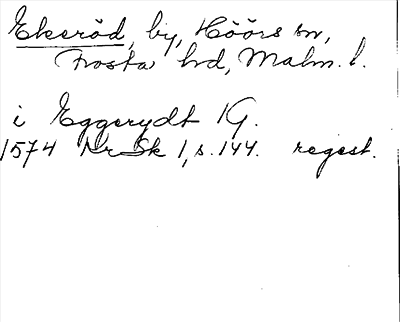 Ekeröd, by, Höörs sn,
Frosta hd, Malm. l.
i Eggerydt IG.
1574 Nr Sk 1, s. 144. regest.